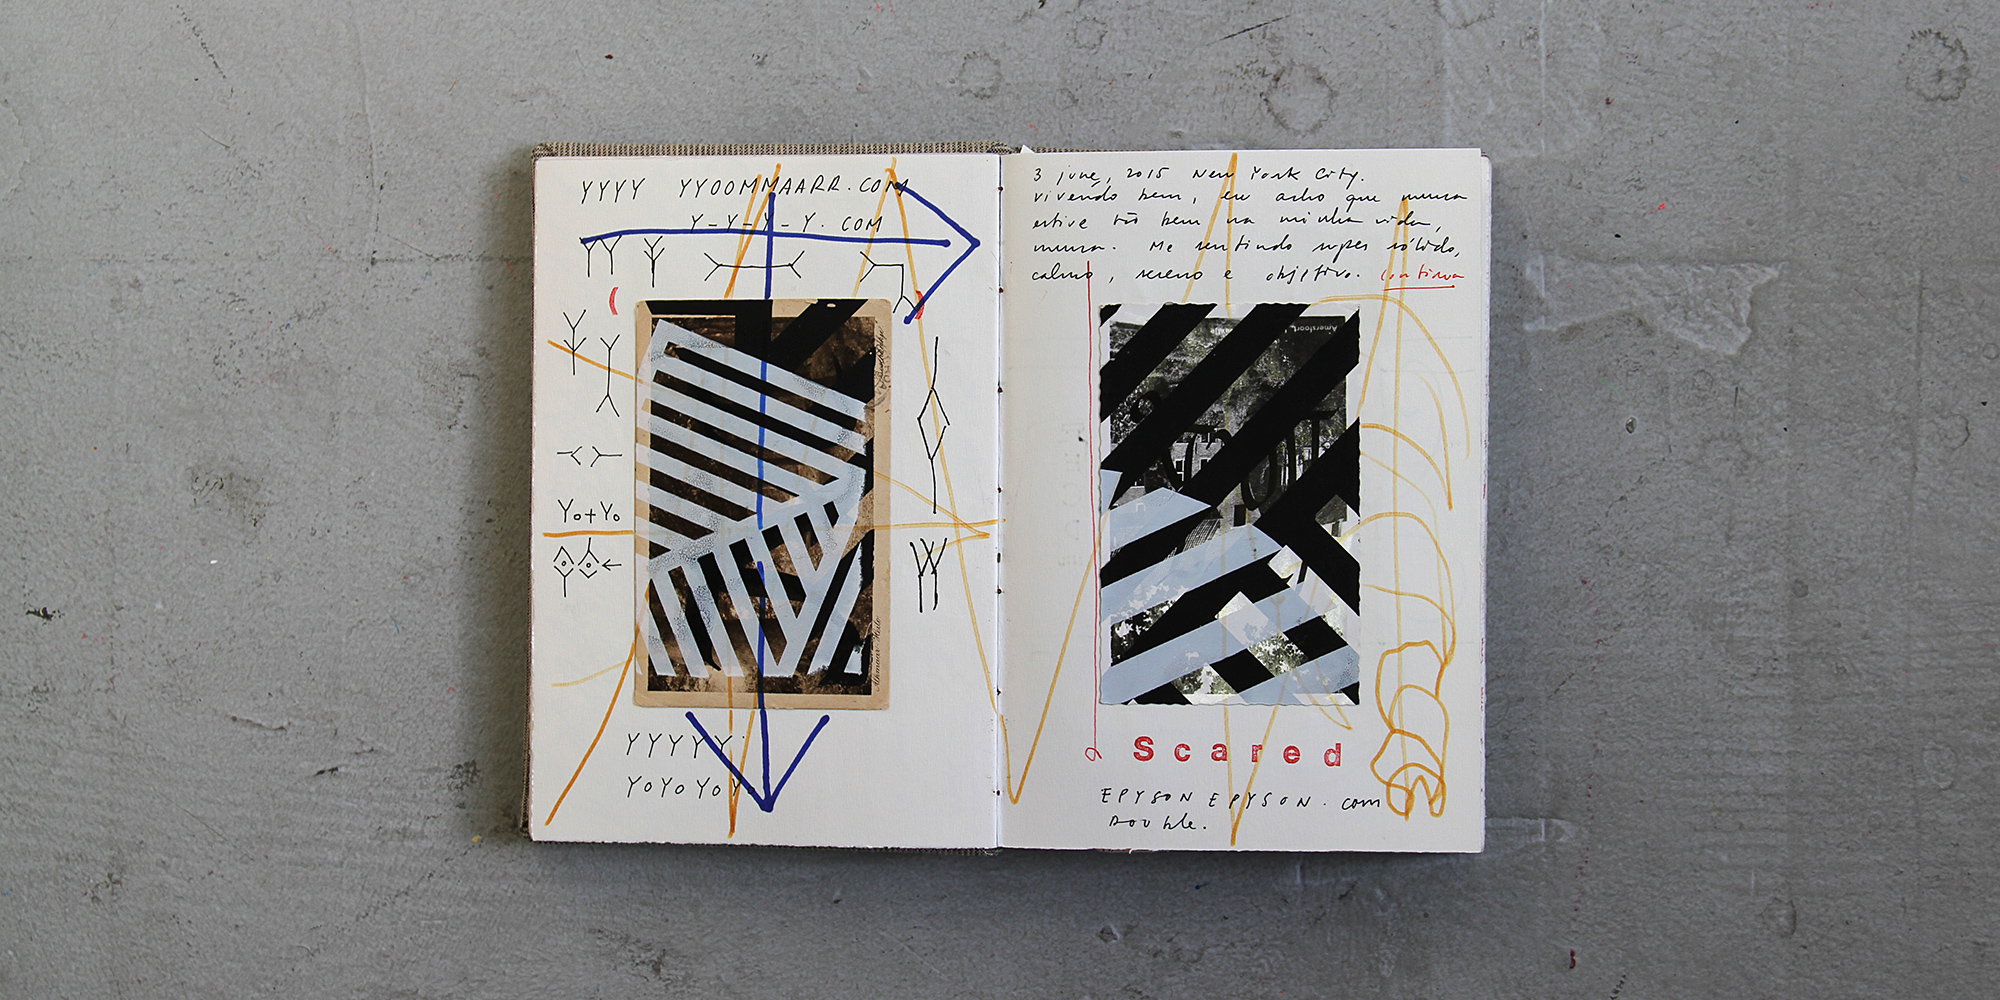 YYYY YYOOMMAARR.COM
Y-Y-Y-Y.COM
YY Y
Yo+Yo
YYYYY
YoYoYoYo
3 june, 2015 New York City.
vivendo bem, eu acho que nunca
estive tão bem na minha vida,
nunca. Me sentindo super sólido,
calmo, sereno e objetivo. continua
Amersfoort,
Scared
EPYSON EPYSON.com
Double.